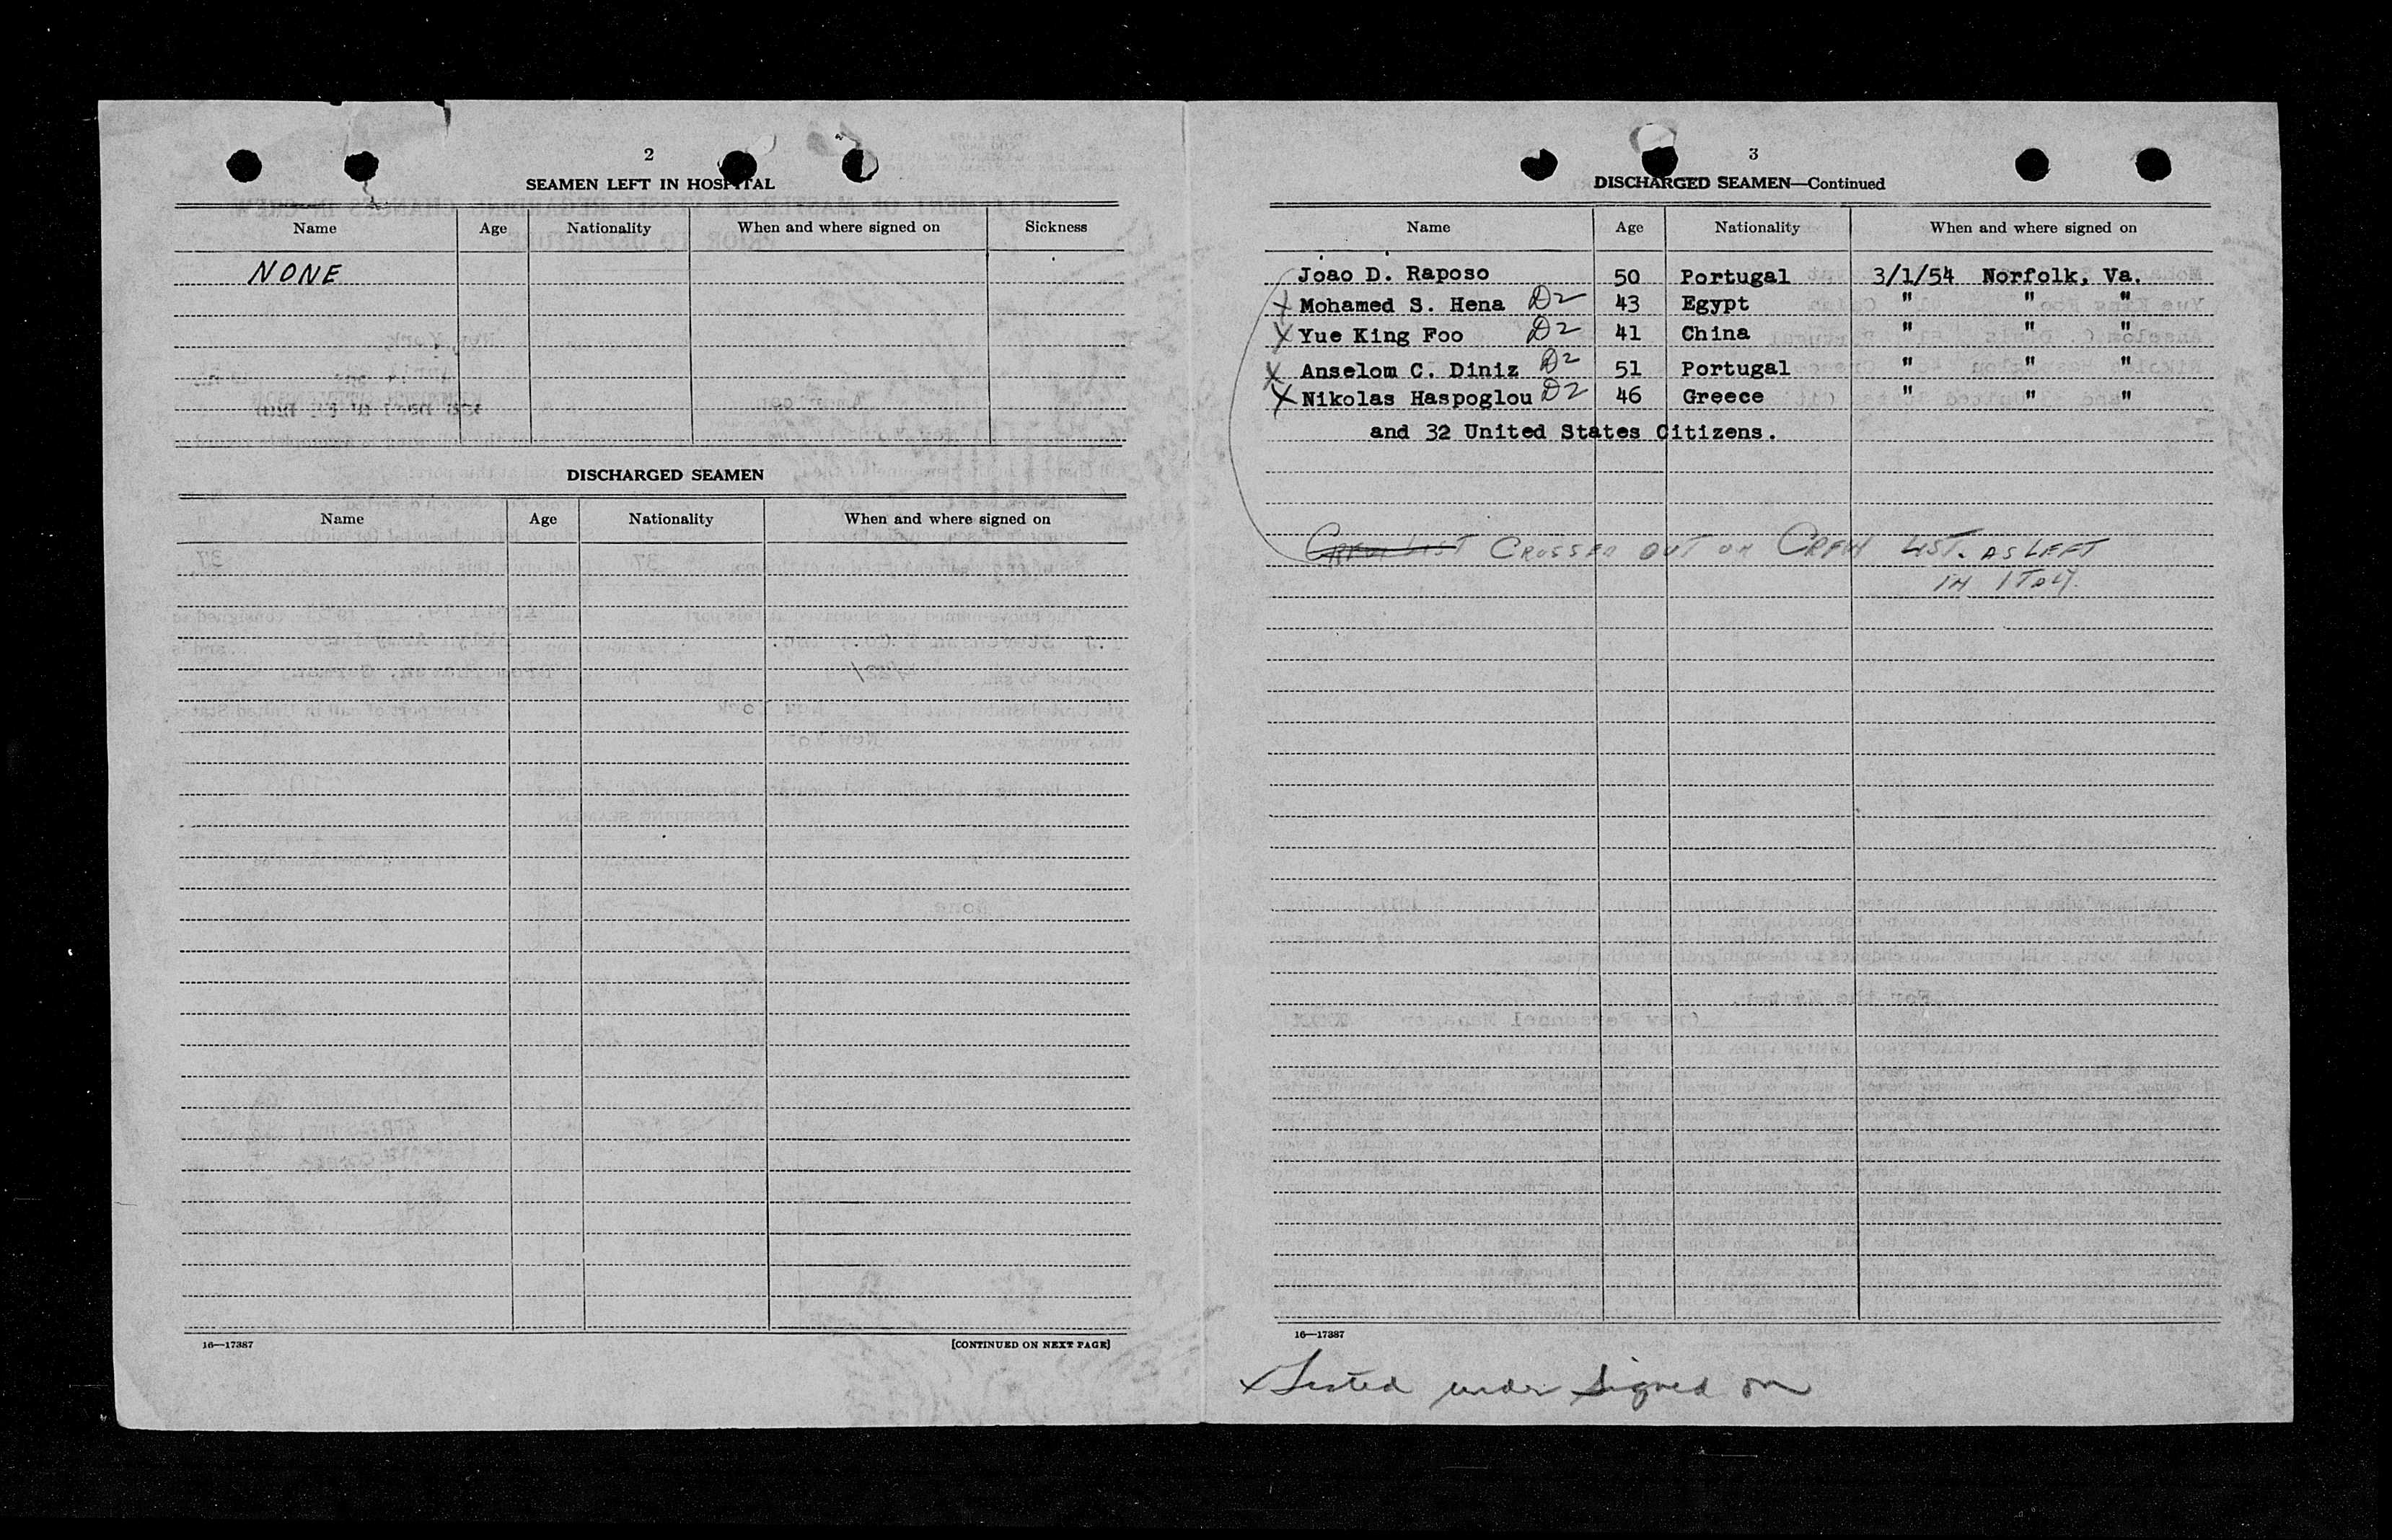 2
SEAMEN LEFT IN HOSPITAL
Name Age Nationality When and where signed on Sickness
NONE
DISCHARGED SEAMEN
Name Age Nationality When and where signed on
16—17387 [CONTINUED ON NEXT PAGE]
3
DISCHARGED SEAMEN—Continued
Name Age Nationality When and where signed on
Joao D. Raposo 50 Portugal 3/1/54 Norfolk, Va.
X Mohamed S. Hena D2 43 Egypt " " "
X Yue King Foo D2 41 China " " "
X Anselom C. Diniz D2 51 Portugal " " "
X Nikolas Haspoglou D2 46 Greece " " "
and 32 United States Citizens.
CREW LIST CROSSED OUT ON CREW LIST. AS LEFT
IN ITALY.
16—17387
x Listed under signed on